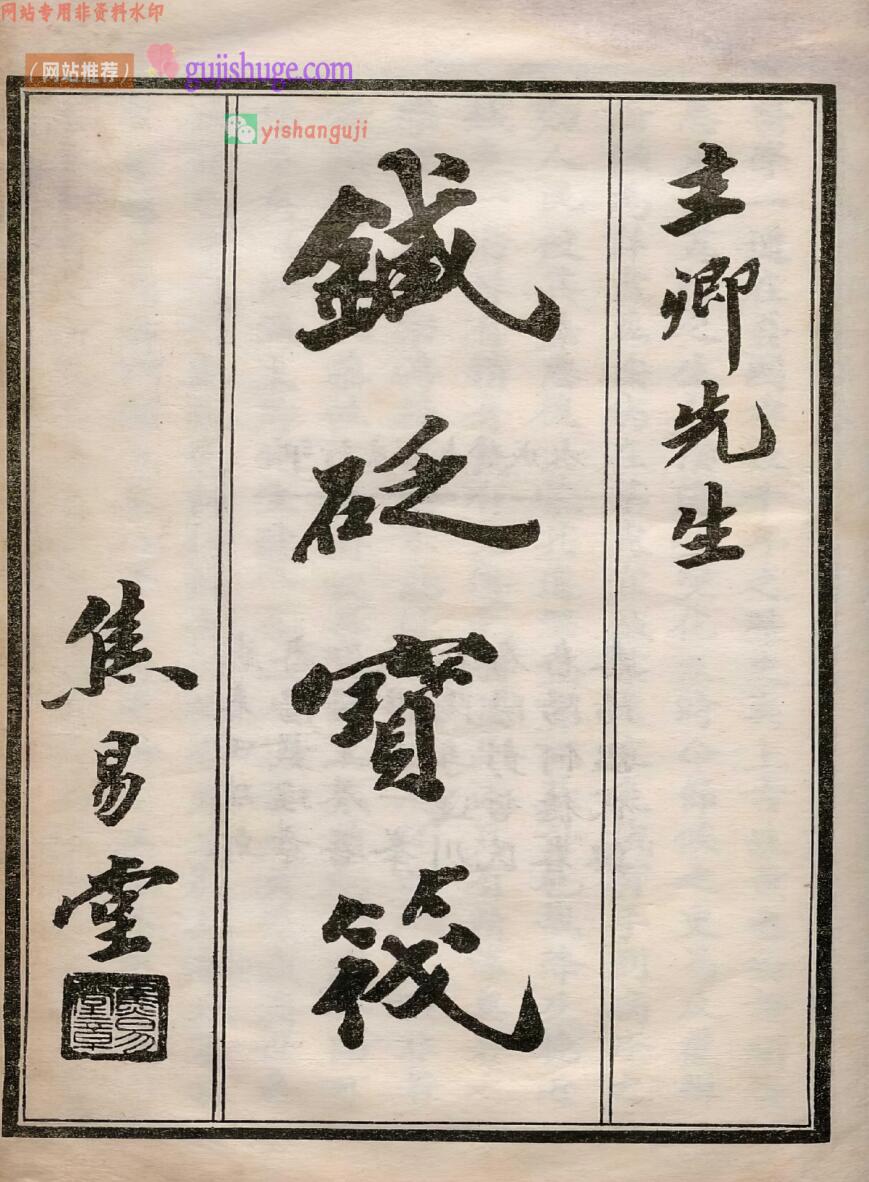 网站专用非资料水印
（网站推荐） gujishuge.com
yishanguji
主卿先生
鍼砭寶筏
焦易堂
焦易堂章